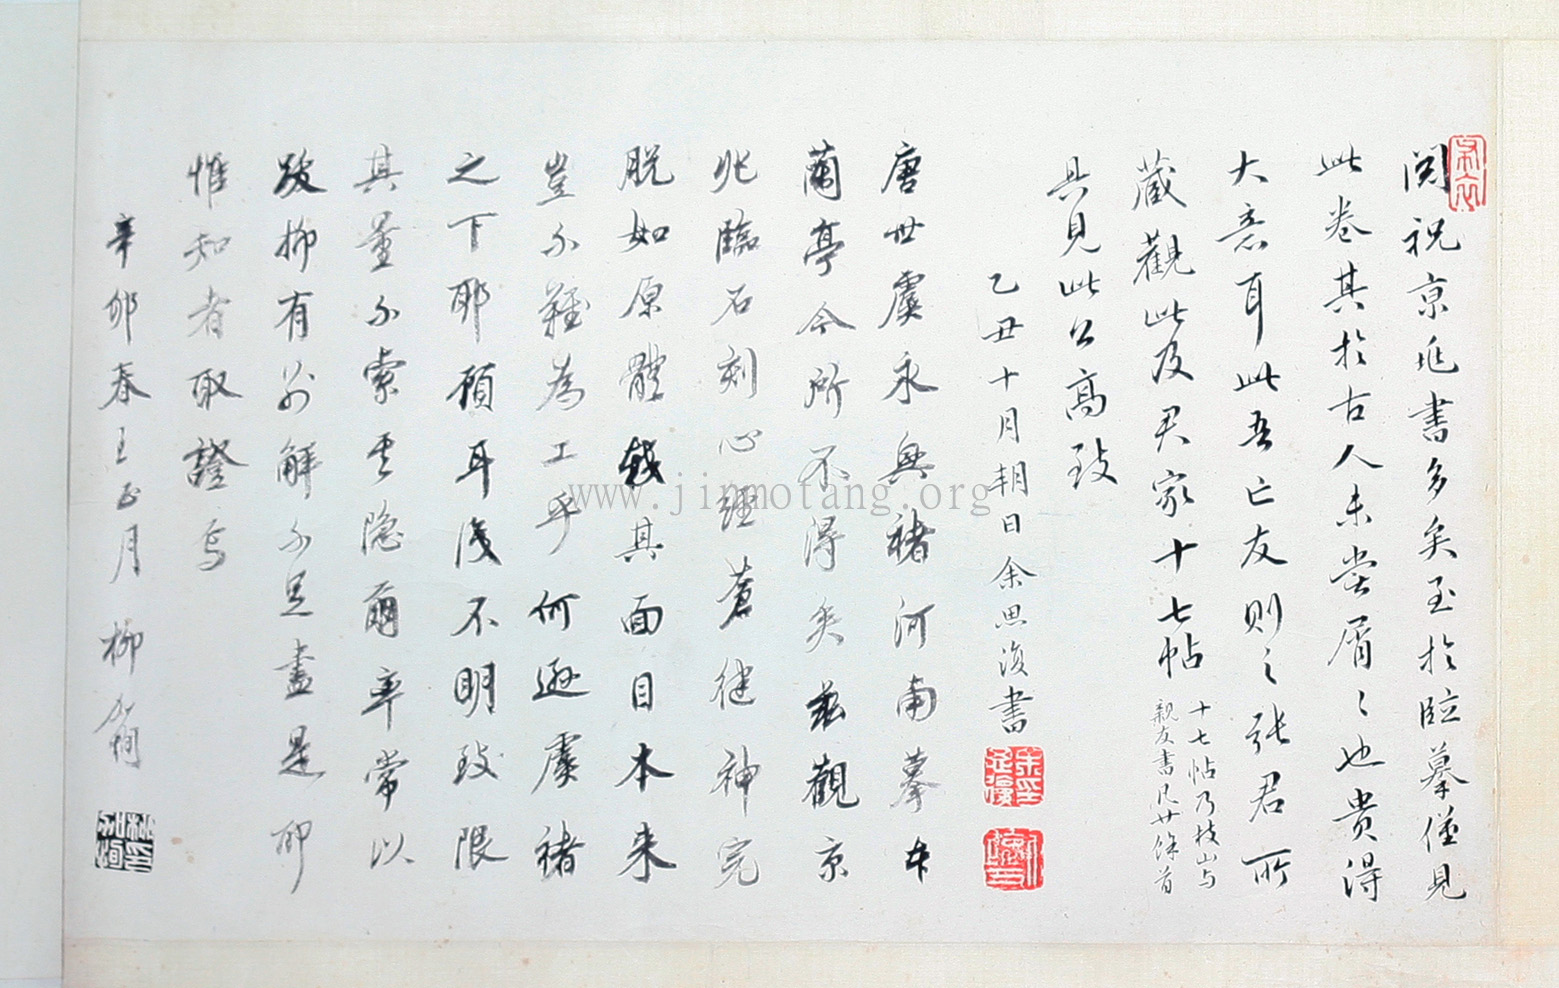 閱祝京兆書多矣至於臨摹僅見
此卷其於古人未嘗屑〻也貴得
大意耳此吾亡友則之張君所
藏觀此及尹家十七帖
十七帖乃枝山与
親友書凡廿餘首
具見此公高致
乙丑十月朝日余思復書
唐世虞永興褚河南摹本
蘭亭今所不得矣茲觀京
兆臨石刻心經蒼健神完
脱如原體
其面目本来
豈不難為工乎何遜虞褚
之下耶顧耳淺不明致限
其量不索玄隐爾率常以
跋抑有別解不足盡是耶
惟知者取證焉
辛卯春王正月柳
www.jinmotang.org